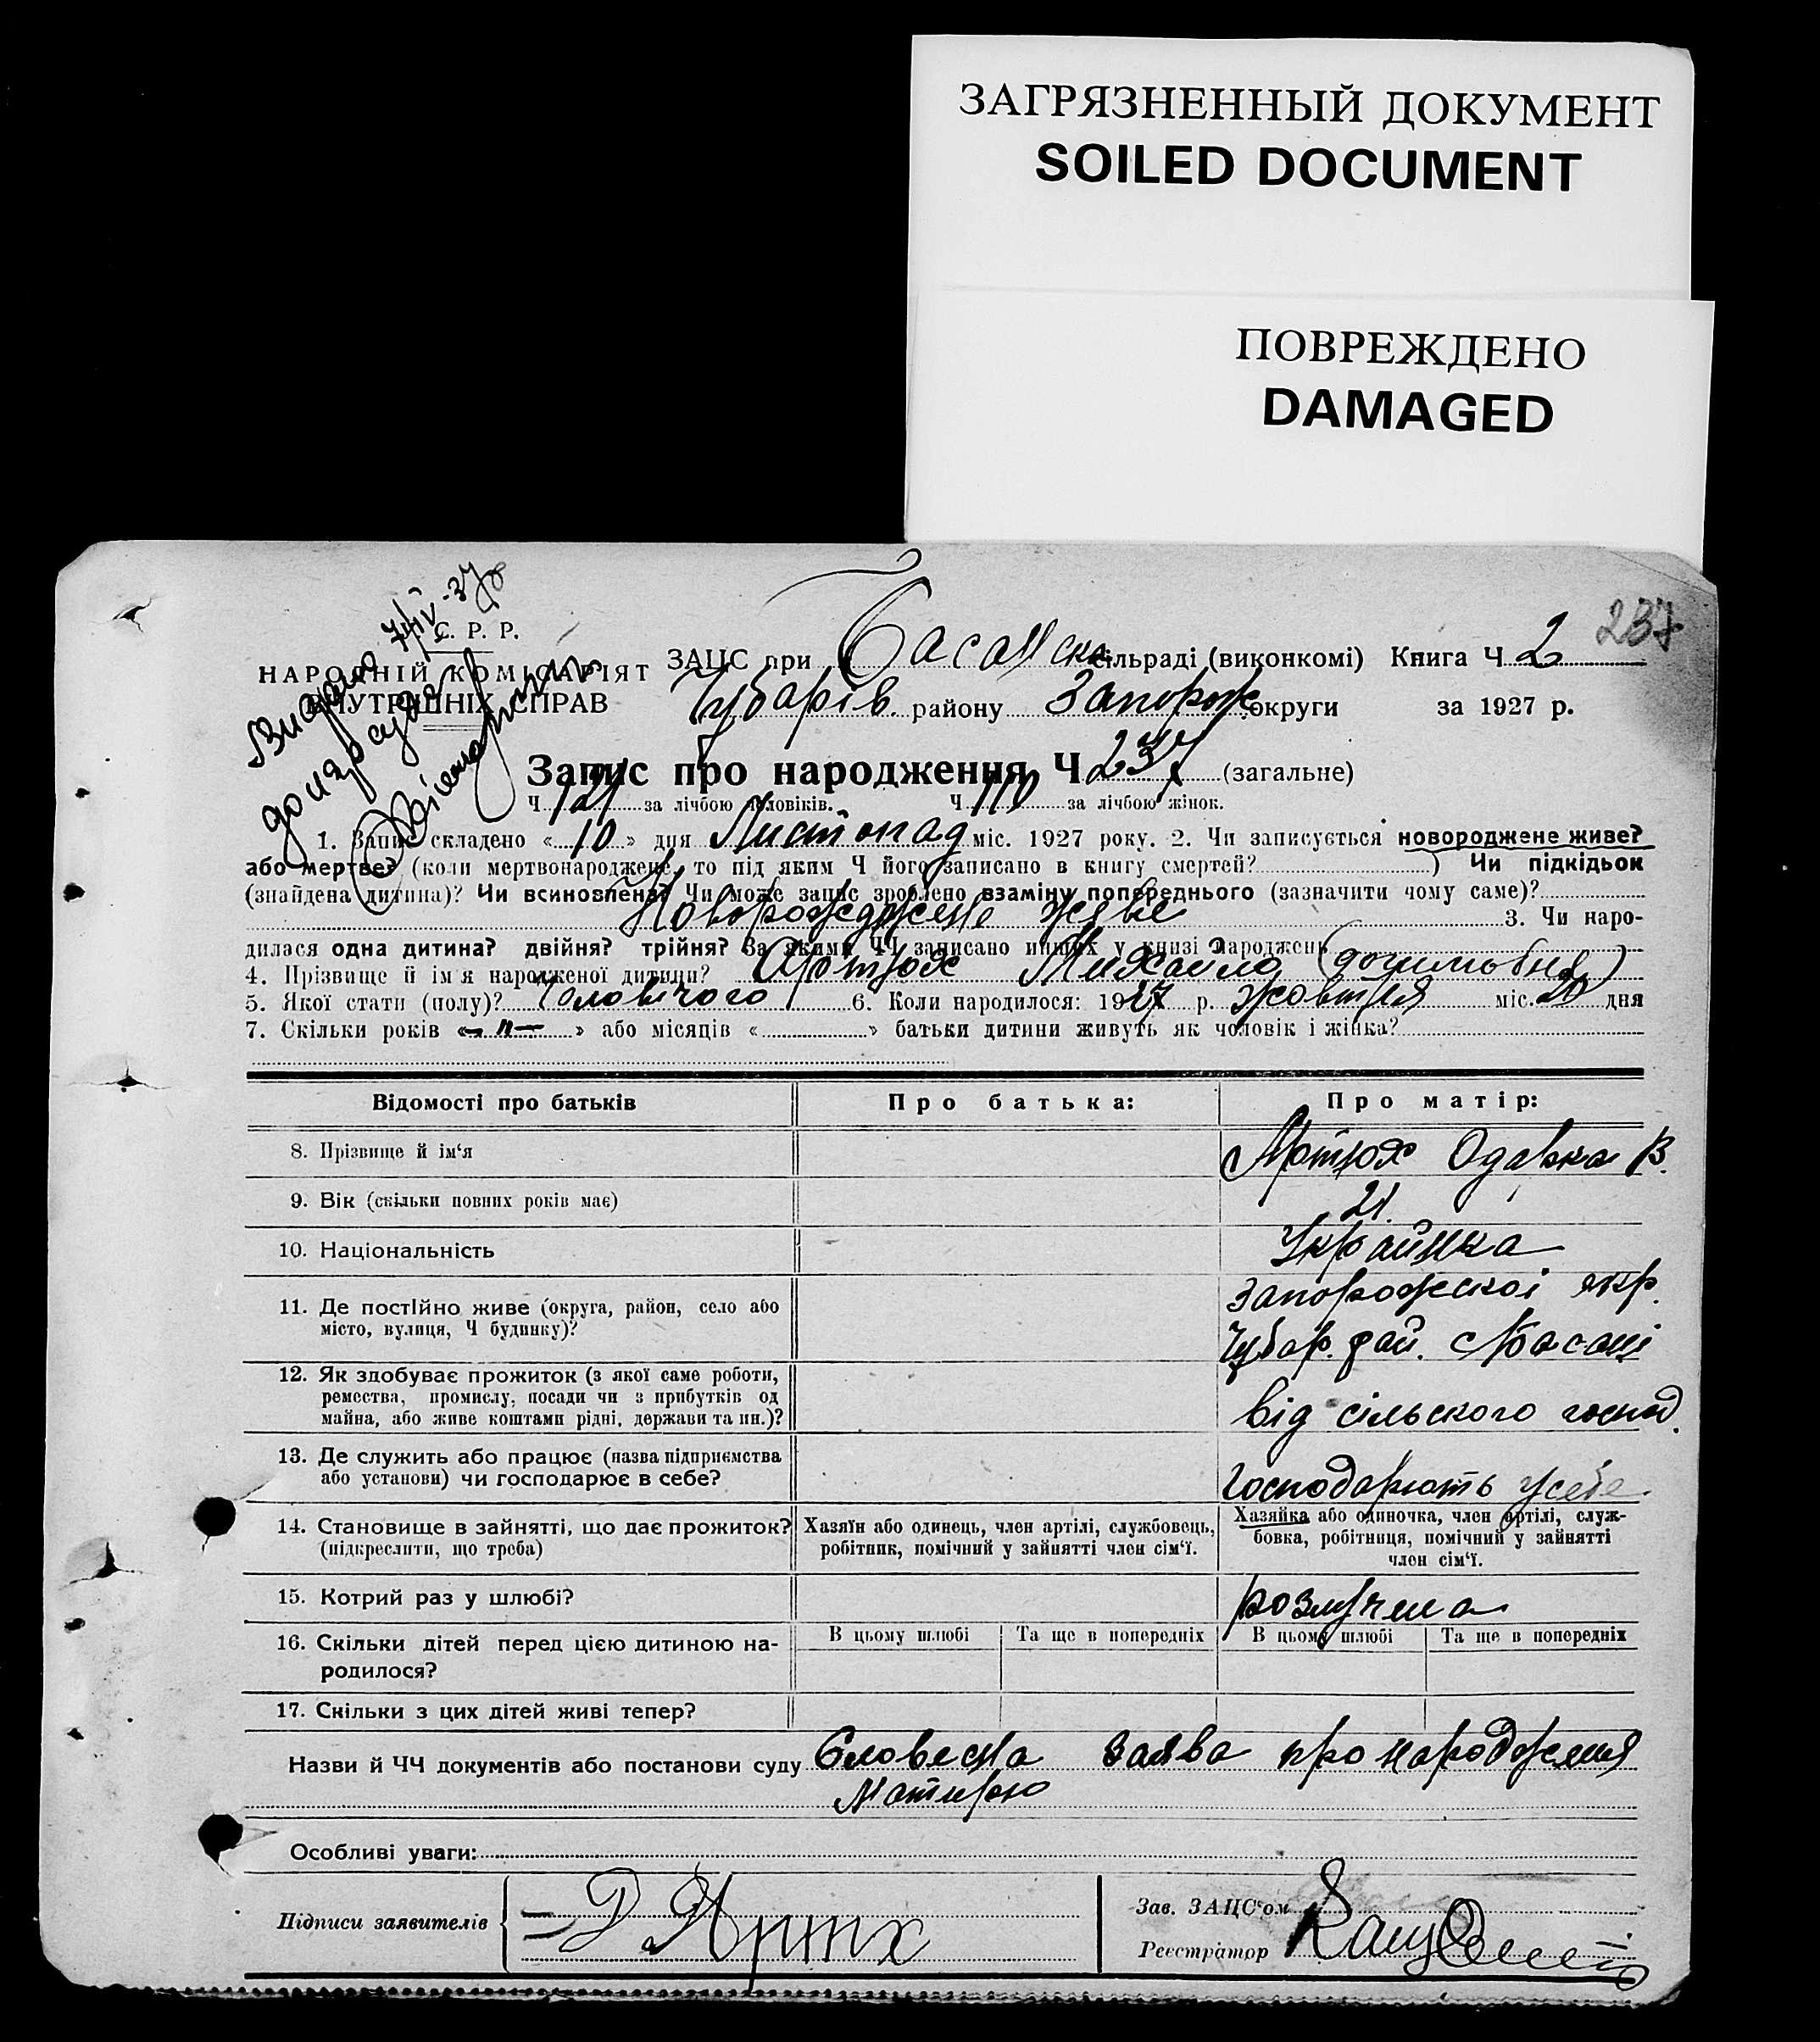 ЗАГРЯЗНЕННЫЙ ДОКУМЕНТ
SOILED DOCUMENT
ПОВРЕЖДЕНО
DAMAGED
237
С. Р. Р.
НАРОДНІЙ КОМІСАРІЯТ
ВНУТРІШНІХ СПРАВ
ЗАЦС при Басанско сільраді (виконкомі) Книга Ч 2
Чубарів. району Запорож округи за 1927 р.
Запис про народження Ч 237 (загальне)
Ч 127 за лічбою чоловіків. Ч 110 за лічбою жінок.
1. Запис складено « 10 » дня Листопад міс. 1927 року. 2. Чи записується новороджене живе?
або мертве? (коли мертвонароджене, то під яким Ч його записано в книгу смертей? ) Чи підкідьок
(знайдена дитина)? Чи всиновлена? Чи може запис зроблено взаміну попереднього (зазначити чому саме)?
Новорожджене живе 3. Чи наро-
дилася одна дитина? двійня? трійня? За якими ЧЧ записано инших у книзі народжень
4. Прізвище й ім'я народженої дитини? Артюх Михайло
5. Якої стати (полу)? Чоловічого 6. Коли народилося: 1927 р. жовтня міс. 20 дня
7. Скільки років « — „ — » або місяців « » батьки дитини живуть як чоловік і жінка?
Відомості про батьків Про батька: Про матір:
8. Прізвище й ім'я Артюх Одарка В.
9. Вік (скільки повних років має) 21.
10. Національність Українка
11. Де постійно живе (округа, район, село або
місто, вулиця, Ч будинку)?
Запорожскоі окр.
Чубар. рай. с Басані
12. Як здобуває прожиток (з якої саме роботи,
ремества, промислу, посади чи з прибутків од
майна, або живе коштами рідні, держави та ин.)?
від сільского господ.
13. Де служить або працює (назва підприємства
або установи) чи господарює в себе?
Господарюють усебе.
14. Становище в зайнятті, що дає прожиток?
(підкреслити, що треба)
Хазяїн або одинець, член артілі, службовець,
робітник, помічний у зайнятті член сім'ї.
Хазяйка або одиночка, член артілі, служ-
бовка, робітниця, помічний у зайнятті
член сім'ї.
15. Котрий раз у шлюбі? розлучена
16. Скільки дітей перед цією дитиною на-
родилося?
В цьому шлюбі Та ще в попередніх В цьому шлюбі Та ще в попередніх
17. Скільки з цих дітей живі тепер?
Назви й ЧЧ документів або постанови суду Словесна заява про народження
Матирю
Особливі уваги:
Підписи заявителів
Зав. ЗАЦС'ом
Реєстратор